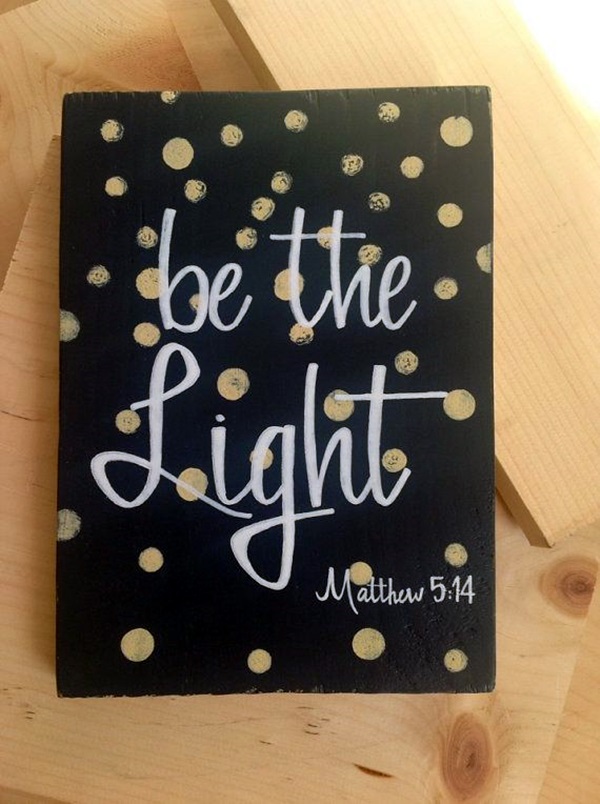 be the
Light
Matthew 5:14